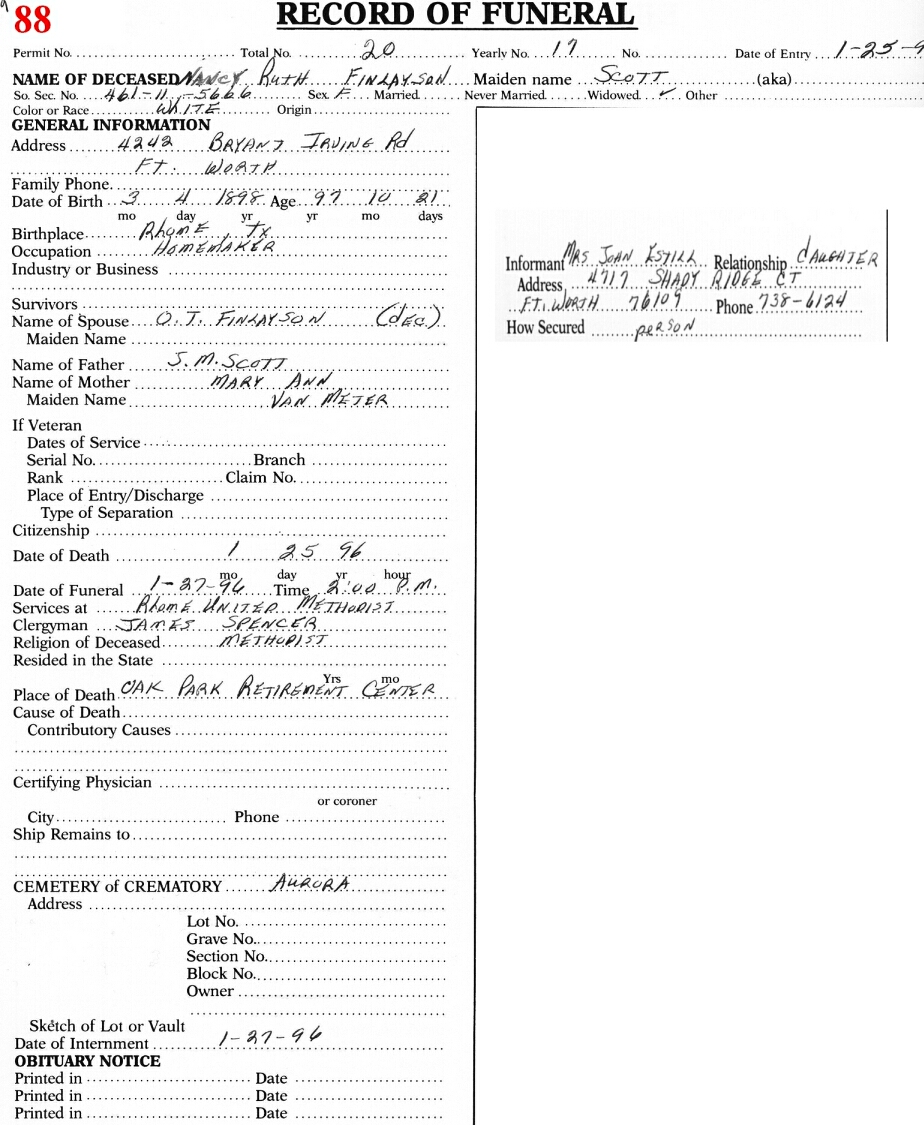 88 RECORD OF FUNERAL
Permit No. Total No. 20 Yearly No. 17 No. Date of Entry 1-25-9
NAME OF DECEASED NANCY RUTH FINLAYSON Maiden name SCOTT (aka)
So. Sec. No. 461-11-5666 Sex F Married Never Married Widowed ✓ Other
Color or Race WHITE Origin
GENERAL INFORMATION
Address 4242 BRYANT IRVING Rd
FT. WORTH
Family Phone
Date of Birth 3 4 1898 Age 97 10 21
mo day yr yr mo days
Birthplace RhomE, TX
Occupation HOMEMAKER
Industry or Business
Survivors
Name of Spouse O.T. FINLAYSON (dEC.)
Maiden Name
Name of Father J.M. SCOTT
Name of Mother MARY ANN
Maiden Name VAN METER
If Veteran
Dates of Service
Serial No. Branch
Rank Claim No.
Place of Entry/Discharge
Type of Separation
Citizenship
Date of Death 1 25 96
mo day yr hour
Date of Funeral 1-27-96 Time 2:00 P.M.
Services at RhomE UNITED METHODIST
Clergyman JAMES SPENCER
Religion of Deceased METHODIST
Resided in the State
Yrs mo
Place of Death OAK PARK RETIREMENT CENTER
Cause of Death
Contributory Causes
Certifying Physician
or coroner
City Phone
Ship Remains to
CEMETERY of CREMATORY AURORA
Address
Lot No.
Grave No.
Section No.
Block No.
Owner
Sketch of Lot or Vault
Date of Internment 1-27-96
OBITUARY NOTICE
Printed in Date
Printed in Date
Printed in Date
Informant MRS JOHN ESTILL Relationship dAUGHTER
Address 4717 SHADY RIDGE CT
FT. WORTH 76109 Phone 738-6124
How Secured pERSON